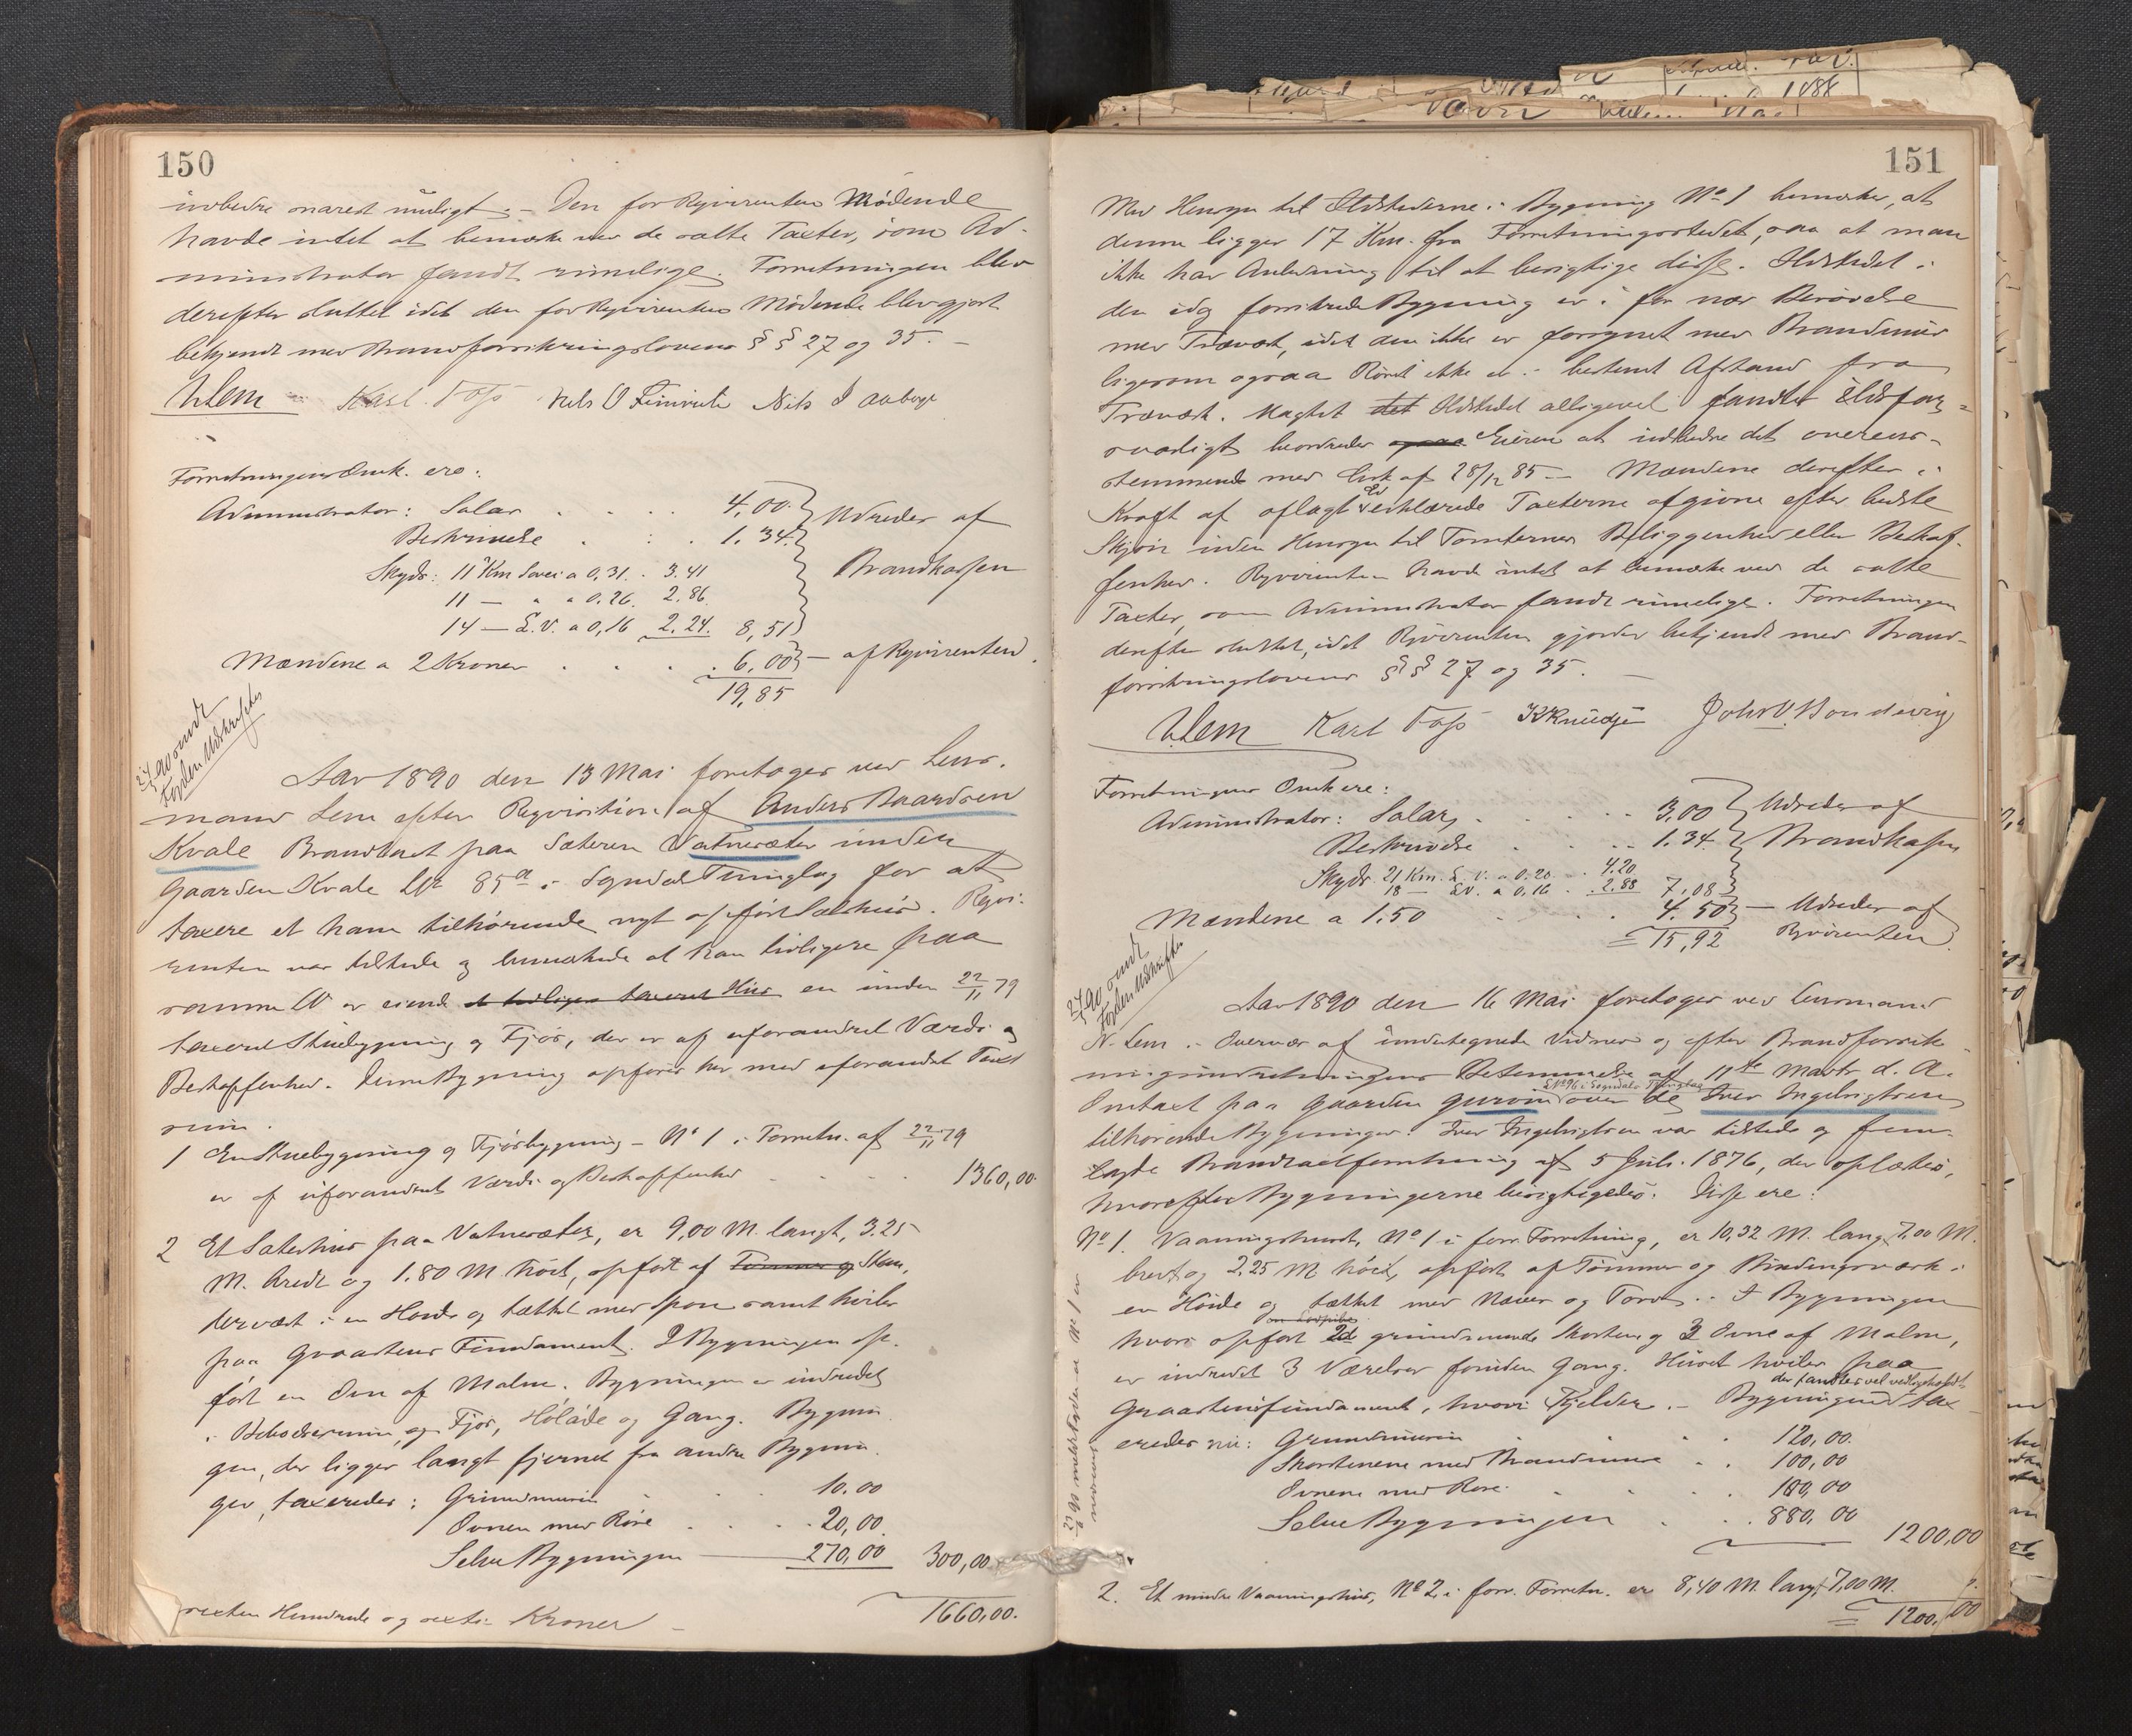 150
udbedre snarest muligt. – Den for Rqvirenten Mødende
havde intet at bemærke ved de satte Taxter, som Ad-
ministrator fandt rimelige. Forretningen blev
derefter sluttet idet den for Rqvirenten Mødende blev gjort
bekjendt med Brandforsikringslovens §§ 27 og 35. –
NLem Karl Foss Nels O Nils I Aaberge
Forretningens Omk. ere:
Administrator: Salar . . . . 4,00. Udreder af
Beskrivelse . . . 1.34. Brandkassen
Skyds: 11 Km a 0,31. 3.41
11 — " " a 0.26. 2.86.
14 — L.V. a 0,16 2.24. 8,51
Mændene a 2 Kroner . . . . 6,00 – af Rqvirenten.
19,85
Aar 1890 den 13 Mai foretoges ved Lens-
mand Lem efter Reqvisition af Anders Baardsen
Kvale Brandtaxt paa Sæteren Vatnesæter under
Gaarden Kvale LNr 85a i Sogndal Tinglag for at
taxere et ham tilhørende nyt opført Sælehus. Reqvi-
renten var tilstede og bemærkede at han tidligere paa
samme No er eiende et tidligere taxeret Hus en under 22/11 79
taxeret Stuebygning og Fjøs, der er af uforandret Værdi og
Beskaffenhed. Denne Bygning opføres her med uforandret Taxt
som.
1 En Stuebygning og Fjøsbygning – No 1 i Forretn. af 22/11 79
er af uforandret Værdi og Beskaffenhed . . . . 1360,00.
2 Et Sæterhus paa Vatnesæter, er 9,00 M. langt, 3.25
M. bredt og 1.80 M høit, opført af Tømmer og Sten,
i en Høide og tækket med Spon samt hviler
paa Graastens Fundament. I Bygningen op-
ført en Ovn af Malm. Bygningen er indredet
i Beboelsesrum, og Fjøs, Høláde og Gang. Bygnin-
gen, der ligger langt fjernet fra andre Bygnin-
ger, taxeredes: Grundmuren . . . 10.00
Ovnen med Røre . . . . 20,00
Selve Bygningen 270,00 300,00
sexten Hundrede og sexti Kroner – 1660,00.
151
Med Hensyn til Ildstederne i Bygning No 1 bemærkes, at
denne ligger 17 Km. fra Forretningsstedet, saa at man
ikke har Anledning til at besigtige disse. Ildstedet i
den idag forsikrede Bygning er i for nær Berørelse
med Træværk, idet den ikke er forsynet med Brandmur
ligesom ogsaa Røret ikke er i bestemt Afstand fra
Træværk. Uagtet det Ildstedet alligevel fandtes ildsfor-
svarligt beordredes ogsaa Eieren at udbedre det overens-
stemmende med Cirk af 28/12 85 — Mændene derefter i
Kraft af aflagt Ed erklærede Taxterne afgivne efter bedste
Skjøn uden Hensyn til Tomternes Beliggenhed eller Beskaf-
fenhed. Rqvirenten havde intet at bemærke ved de satte
Taxter, som Administrator fandt rimelige. Forretningen
derefter sluttet, idet Rqvirenten gjordes bekjendt med Brand-
forsikringslovens §§ 27 og 35. —
NLem Karl Foss K Knudsen John O. Bondevig
Forretningens Omk ere:
Administrator: Salar, . . . . . 3,00 Udreder af
Beskrivelse . . . . 1.34. Brandkassen
Skyds. 21 Km. L. V. a 0.20 . . 4.20
18 — L.V. a 0,16 . . 2.88 7,08
Mændene a 1.50 . . . . 4.50 – Udreder af
15,92 Rqvirenten
Aar 1890 den 16 Mai foretoges ved Lensmand
N. Lem i Overvær af undertegnede Vidner og efter Brandforsik-
ringsindretningens Bestemmelse af 11te Marts d. A.
LNo 96 i Sogndals Tinglag
Omtaxt paa Gaarden Gurvin over de Iver Ingebrigtsen
tilhørende Bygninger. Iver Ingebrigtsen var tilstede og frem-
lagde Brandtaxtforretning af 5 Juli 1876, der oplæstes,
hvorefter Bygningerne besigtigedes. Disse ere:
No 1. Vaaningshuset, No 1 i forr. Forretning, er 10,32 M. lang, 7,00 M.
bred og 2,25 M høit, opført af Tømmer og Bindingsværk i
en Høide og tækket med Næver og Torv. – I Bygningen
hvori opført 2de grundmurede Skorstene og 3 Ovne af Malm,
er indredet 3 Værelser foruden Gang. Huset hviler paa
der fandtes vel vedligeholdt
Graastensfundament, hvori Kjelder. – Bygningen tax-
eredes nu: Grundmuren . . . 120,00.
Skorstenene med Brandmure . . 100,00
Ovnene med Røre . . . . 100,00
Selve Bygningen . . . 880,00 1200,00
2. Et mindre Vaaningshus, No 2 i forr. Forretn. er 8,40 M. lang, 7,00 M.
1200,00